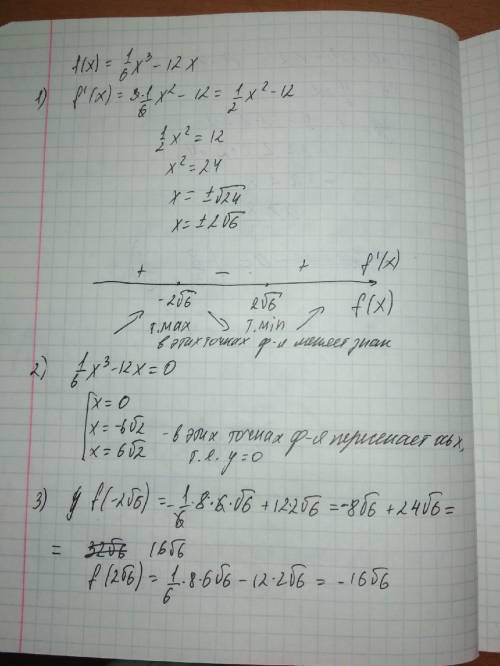 f(x) = 1/6 x³ - 12x
1) f'(x) = 3·1/6 x² - 12 = 1/2 x² - 12
1/2 x² = 12
x² = 24
x = ±√24
x = ±2√6
+ - + f'(x)
-2√6 2√6 f(x)
т.max т.min
в этих точках ф-я меняет знак
2) 1/6 x³ - 12x = 0
x = 0
x = -6√2 - в этих точках ф-я пересекает ось x,
x = 6√2 т.е. y = 0
3) f(-2√6) = -1/6·8·6·√6 + 12·2√6 = -8√6 + 24√6 =
= 32√6 16√6
f(2√6) = 1/6·8·6√6 - 12·2√6 = -16√6